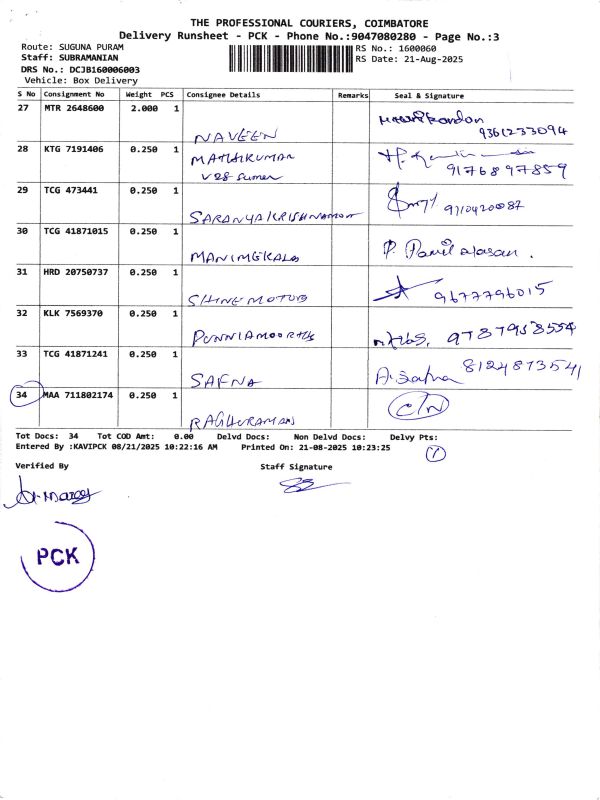 THE PROFESSIONAL COURIERS, COIMBATORE
Delivery Runsheet - PCK - Phone No.:9047080280 - Page No.:3
Route: SUGUNA PURAM RS No.: 1600060
Staff: SUBRAMANIAN RS Date: 21-Aug-2025
DRS No.: DCJB160006003
Vehicle: Box Delivery
S No Consignment No Weight PCS Consignee Details Remarks Seal & Signature
27 MTR 2648600 2.000 1 NAVEEN 9361233094
28 KTG 7191406 0.250 1 MATHIKUMAR 9176897859
29 TCG 473441 0.250 1 SARANYA KRISHNAMOORT
30 TCG 41871015 0.250 1 MANIMEKALA
31 HRD 20750737 0.250 1 SHINE MOTUB 9677796015
32 KLK 7569370 0.250 1 PUNNIAMOORTHY
33 TCG 41871241 0.250 1 SAFNA A. Safna 8124873541
34 MAA 711802174 0.250 1 RAGHURAMAN C/N
Tot Docs: 34 Tot COD Amt: 0.00 Delvd Docs: Non Delvd Docs: Delvy Pts:
Entered By :KAVIPCK 08/21/2025 10:22:16 AM Printed On: 21-08-2025 10:23:25
Verified By Staff Signature
PCK